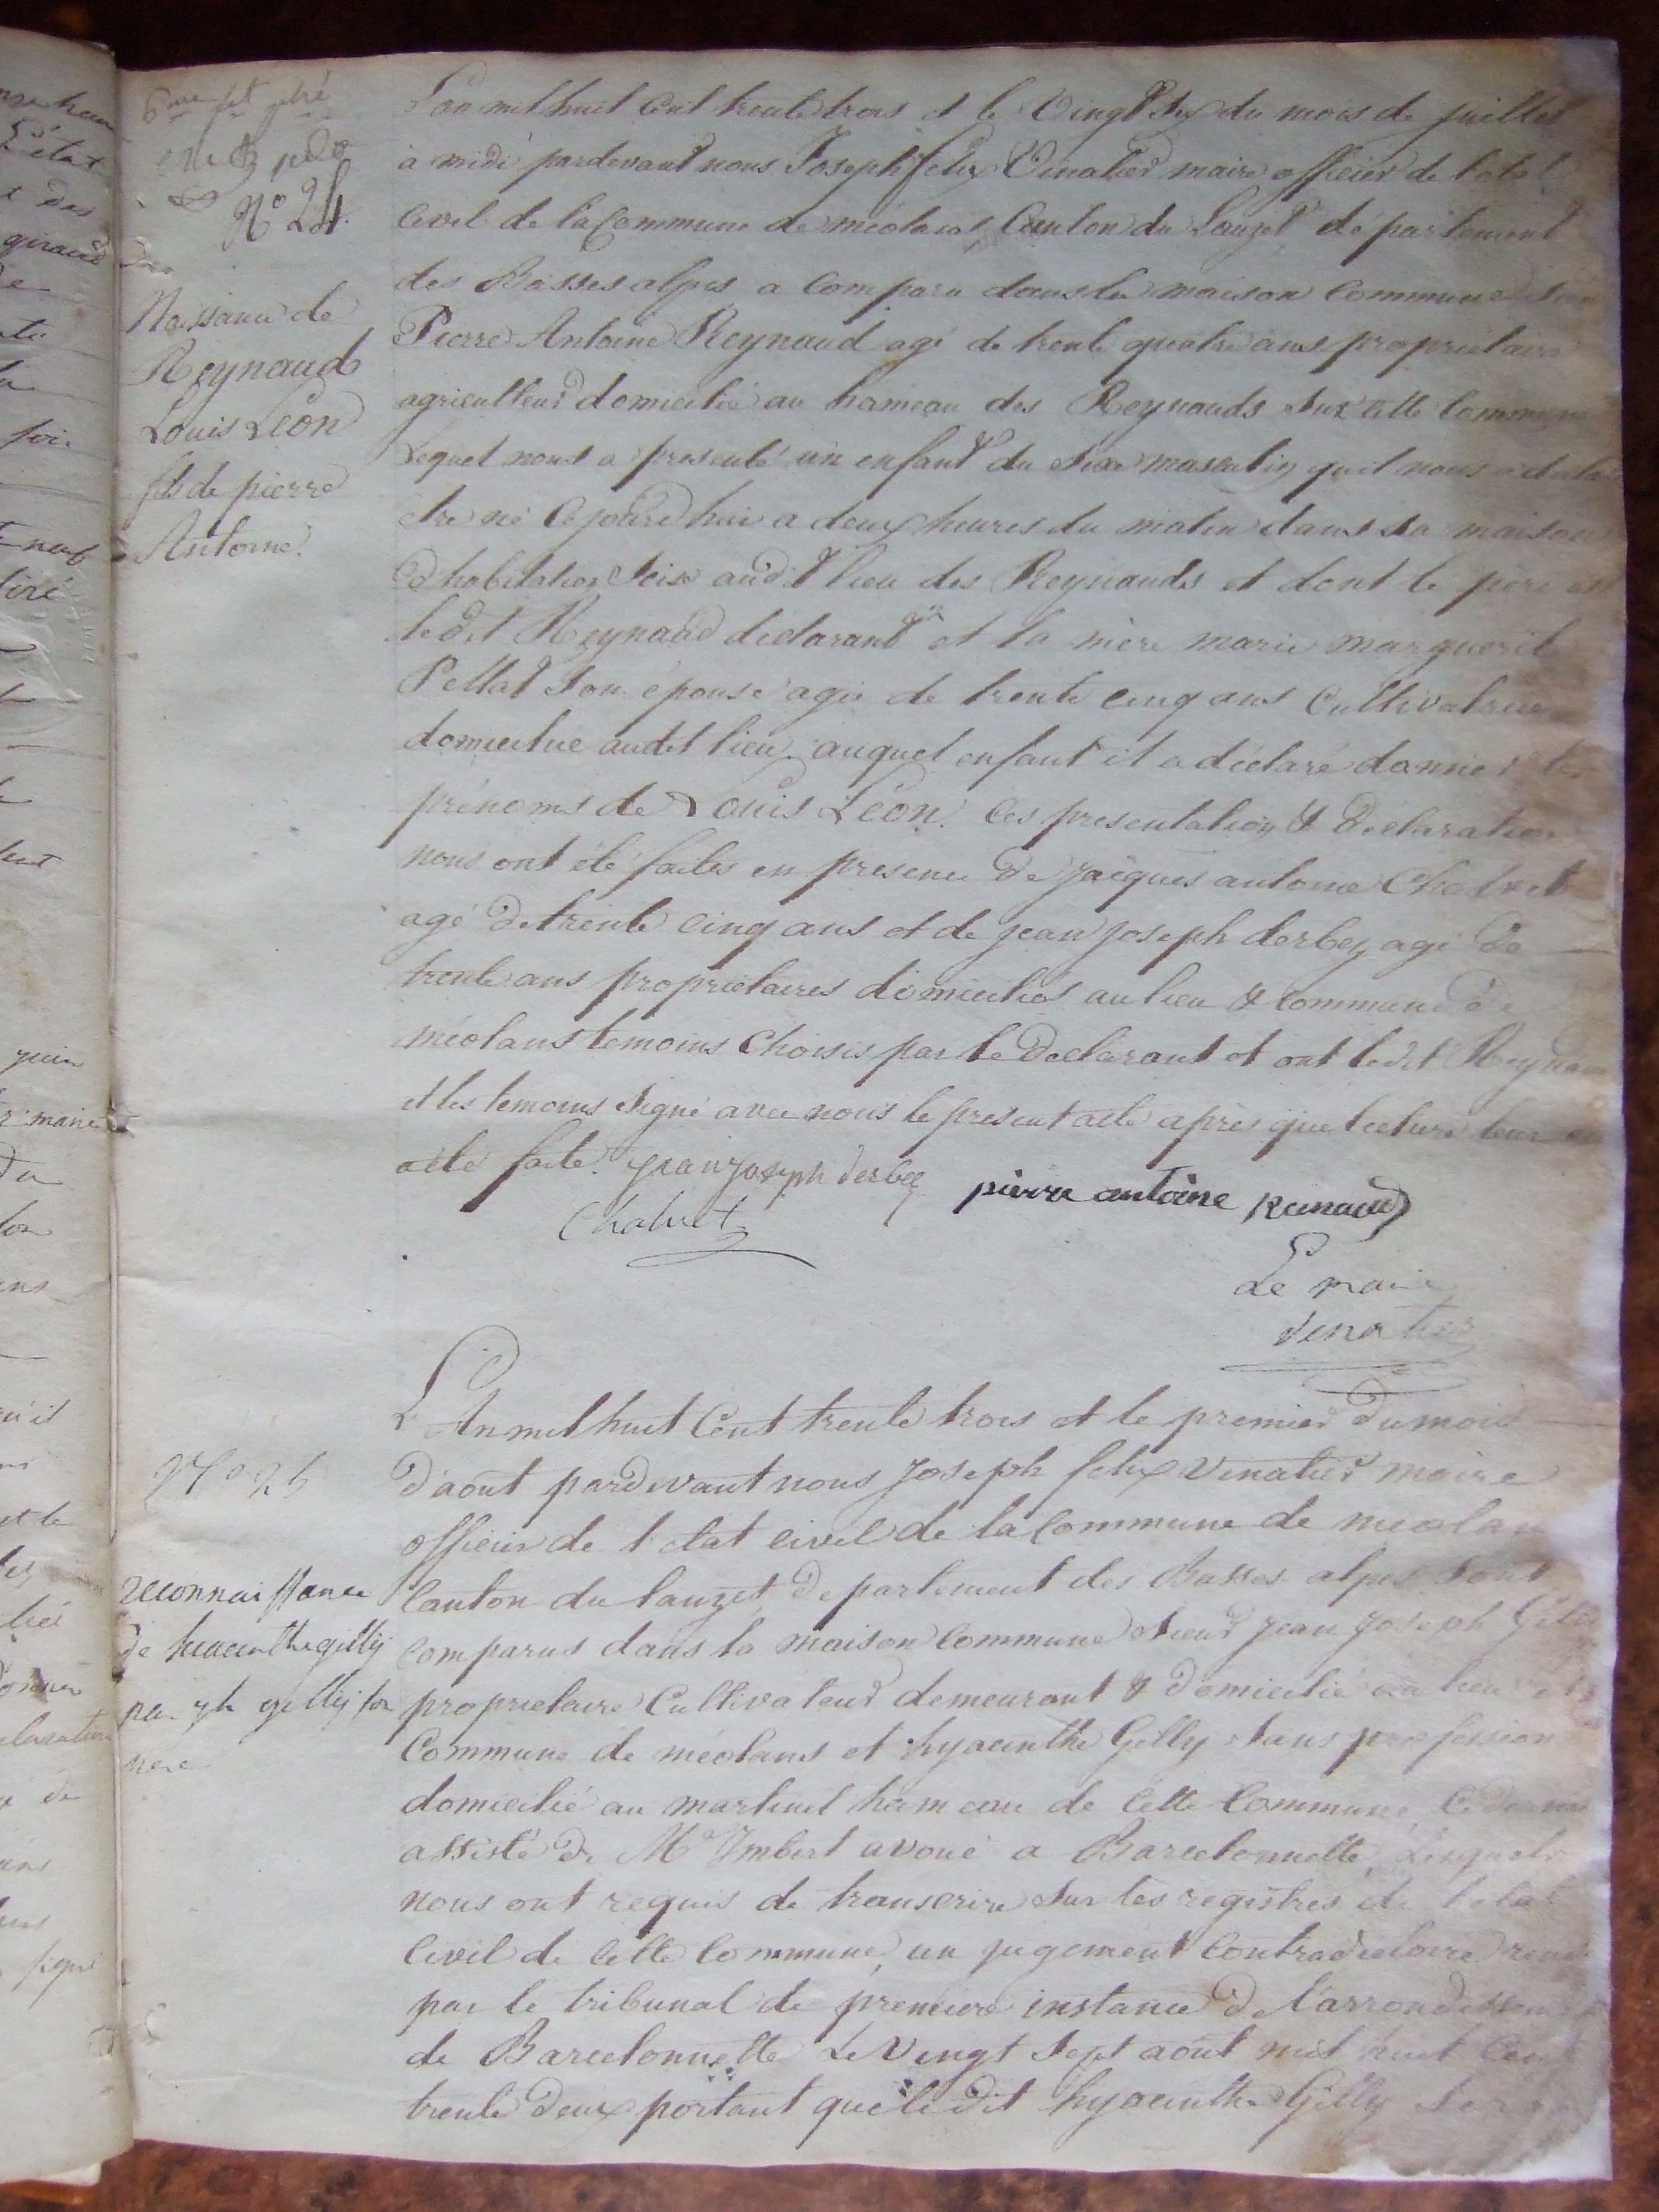 N° 24.
Naissance de
Reynaud
Louis Léon
fils de pierre
Antoine.
L'an mil huit Cent trente trois et le Vingt Six du mois de juillet
à midi pardevant nous Joseph felix Vinatier maire officier de l'état
Civil de la Commune de méolans Canton du Lauzet département
des Basses alpes a Comparu dans la maison Commune
Pierre Antoine Reynaud agé de trente quatre ans propriétaire
agriculteur domicilié au hameau des Reynauds Sur cette Commune
Lequel nous a presenté un enfant du Sexe masculin quil nous a
être né Ce jourd'hui a deux heures du matin dans sa maison
d'habitation Seise audit lieu des Reynauds et dont le père est
ledit Reynaud déclarant et la mère marie marguerite
Pellat Son épouse agée de trente cinq ans Cultivatrice
domiciliée audit lieu, auquel enfant il a déclaré donner les
prénoms de Louis Léon. Ces presentation & déclaration
nous ont été faites en presence de jacques antoine Chalvet
agé de trente cinq ans et de jean joseph derbez agé de
trente ans propriétaires domiciliés au lieu & Commune de
méolans temoins Choisis par le déclarant et ont ledit Reynaud
et les temoins Signé avec nous le present acte après que lecture leur
a été faite. jean joseph derbez pierre antoine Reinaud
Chalvet
Le maire
Vinatier
N° 25
reconnaissance
de hiacinthe gilly
par jh gilly son
père
L'An mil huit Cent trente trois et le premier du mois
d'août pardevant nous joseph felix Vinatier maire
officier de l'état civil de la Commune de meolans
Canton du lauzet, département des Basses alpes Sont
Comparus dans la maison Commune Sieur jean joseph Gilly
propriétaire Cultivateur demeurant & domicilié au lieu et
Commune de méolans et hyacinthe Gilly Sans profession
domicilié au martinet hameau de Cette Commune, Ce dernier
assisté de Me Imbert avoué a Barcelonnette, Lesquels
nous ont requis de transcrire Sur les registres de l'état
Civil de Cette Commune, un jugement Contradictoire rendu
par le tribunal de premiere instance de l'arrondissement
de Barcelonnette Le Vingt Sept août mil huit Cent
trente deux portant que ledit hyacinthe Gilly Sera